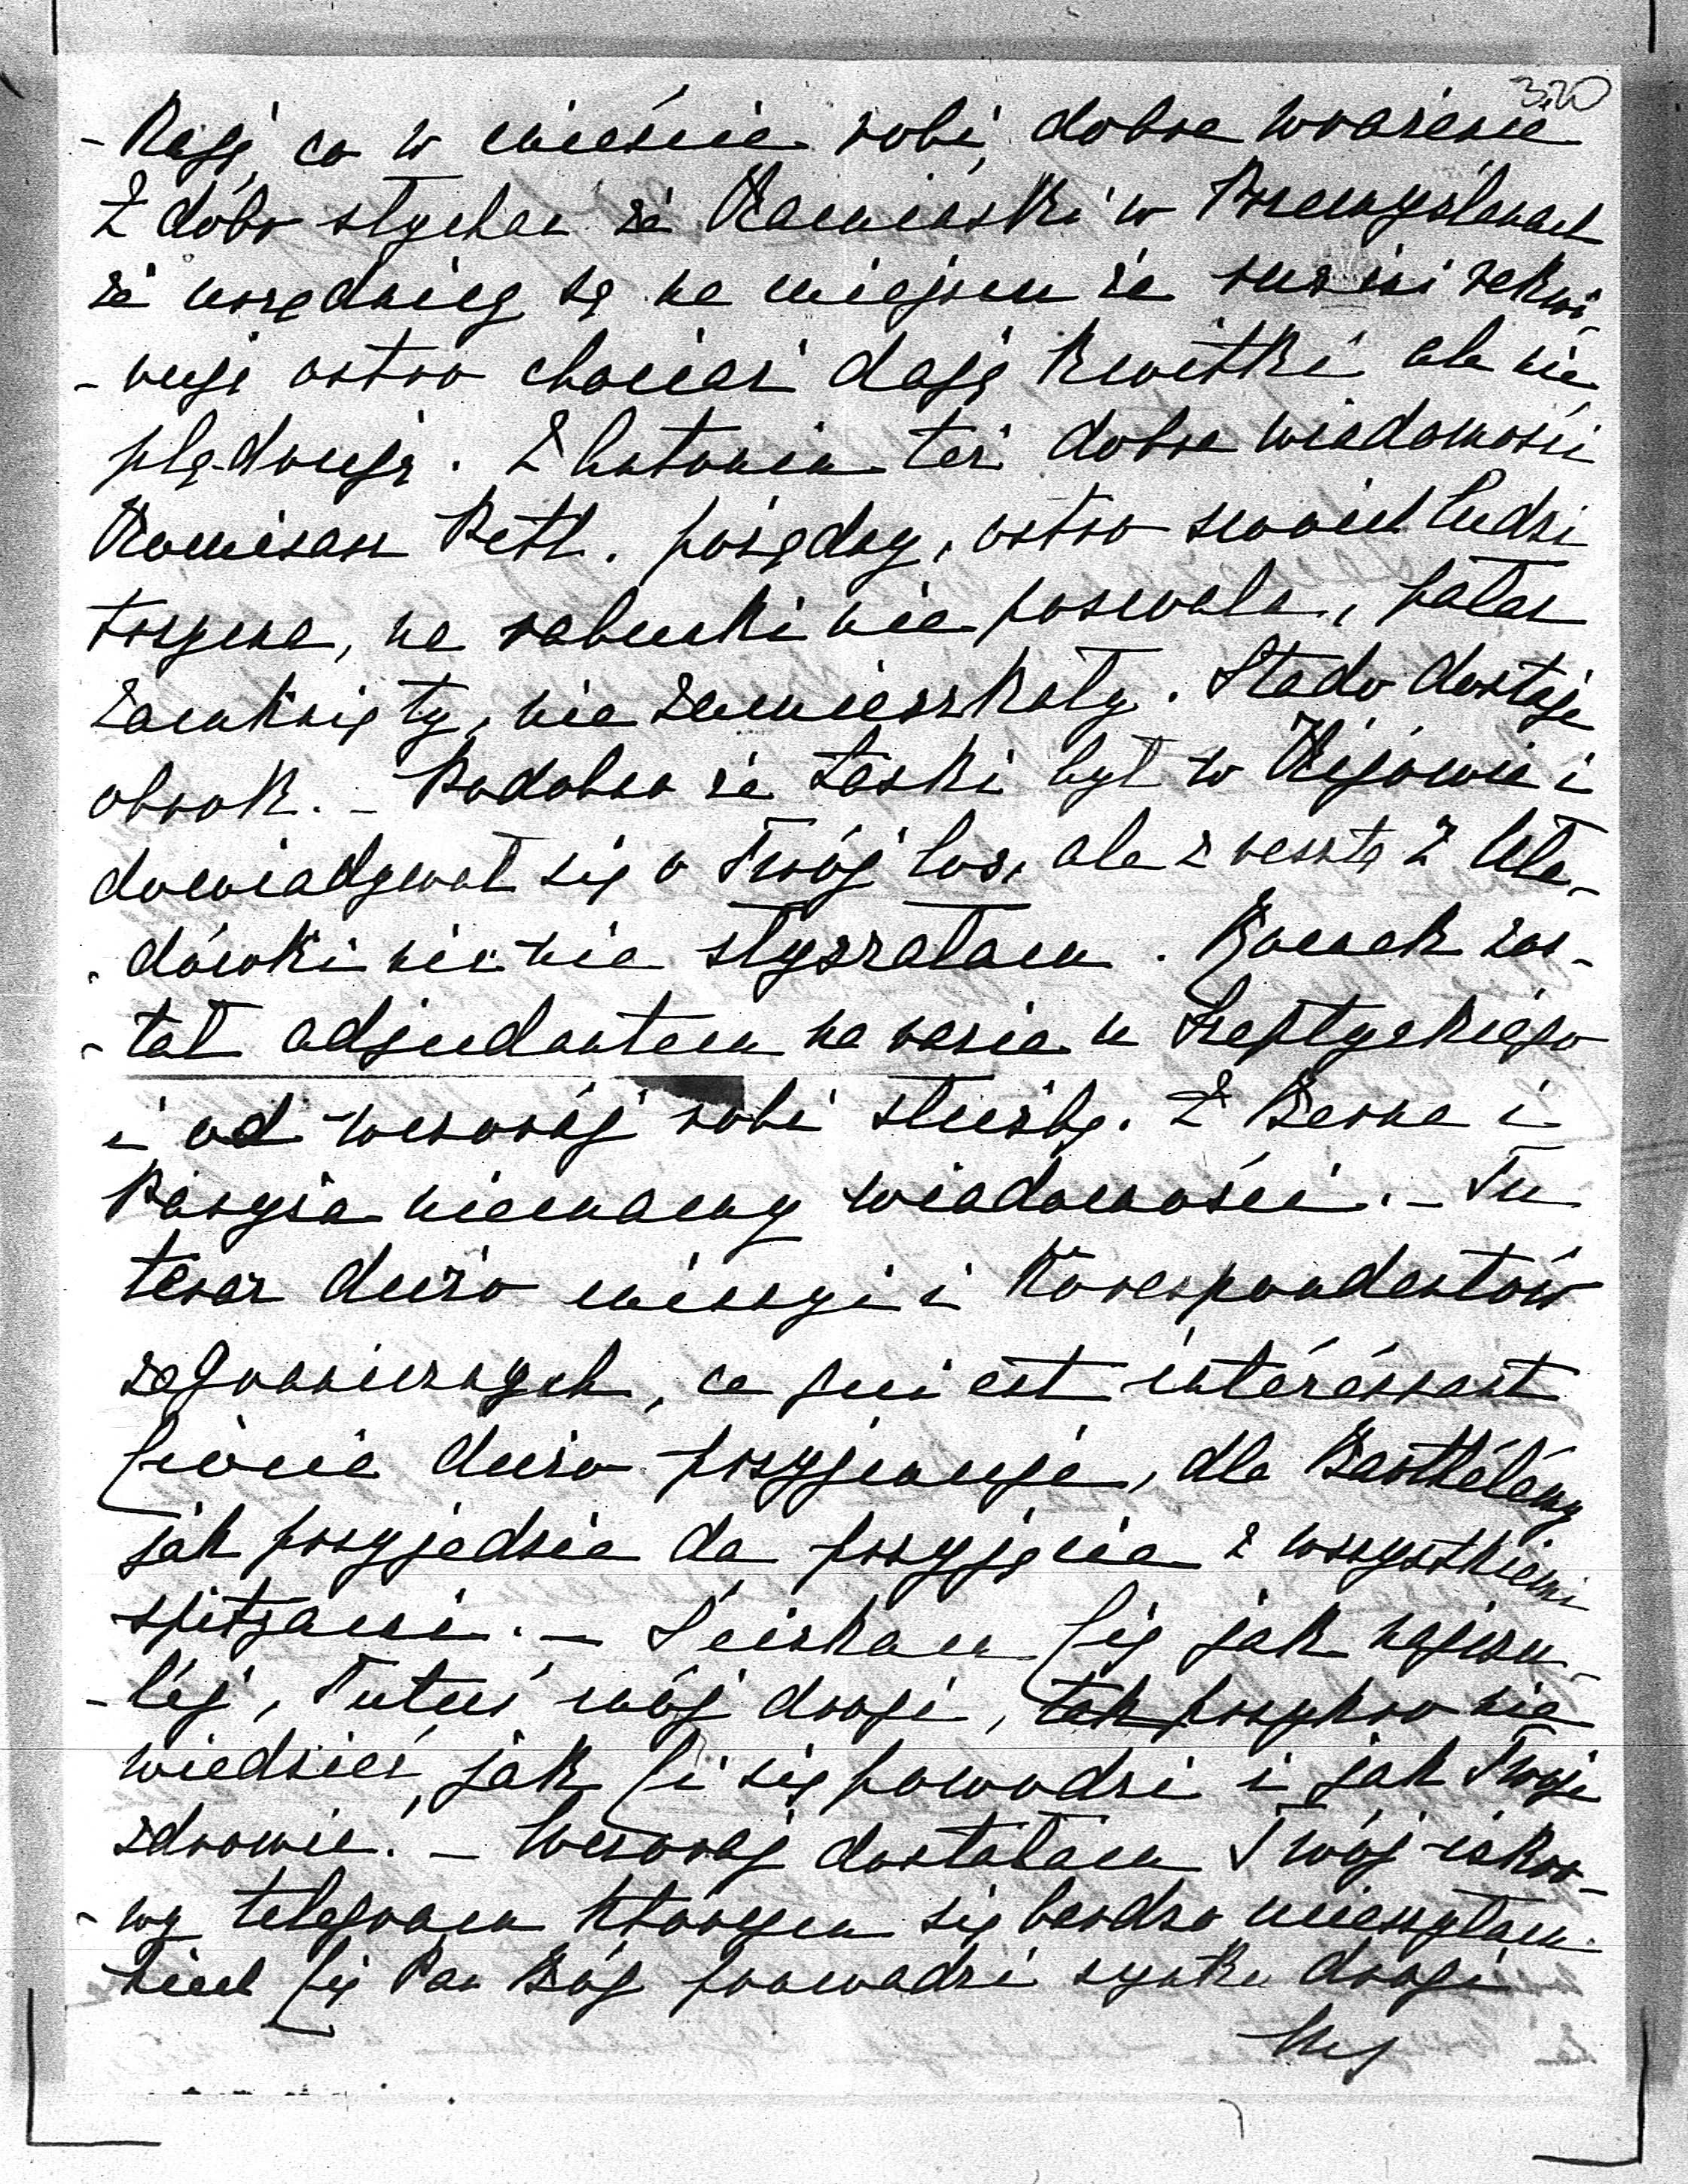 320
-kają co w mieście robi dobre wrażenie
Z dóbr słychać że Kamiński w Przemyślanach
że urzędnicy są na miejscu że rusini rekwi-
-rują ostro chociaż dają kwitki ale nie
plądrują. Z Antonin też dobre wiadomości
Komisarz Petl. porządny, ostro swoich ludzi
trzyma, na rabunki nie pozwala, pałac
zamknięty, nie zamieszkały. Stado dostaje
obrok. – Podobno że Łaski był w Kijowie i
dowiadywał się o Twój los, ale zresztą z Uła-
-dówki nic nie słyszałam. Romek zos-
-tał adjudantem na razie u Szeptyckiego
i od wczoraj robi służbę. Z Berna i
Paryża niemamy wiadomości. – Tu
teraz dużo missyi i korespondentów
zagranicznych, ce qui est intéréssant
Ciocia dużo przyjmuje, dla Barthélémy
jak przyjedzie da przyjęcie z wszystkiemi
spitzami. – Ściskam Cię jak najczu-
-léj, Tutuś mój drogi, tak przykro nie
wiedzieć jak Ci się powodzi i jak Twoje
zdrowie. – Wczoraj dostałam Twój iskro-
-wy telegram którym się bardzo ucieszyłam.
Niech Cię Pan Bóg prowadzi synku drogi